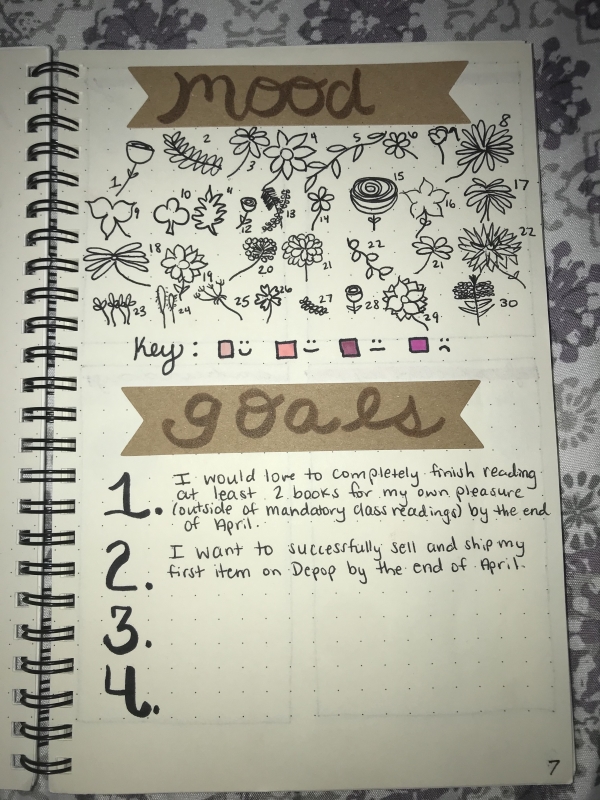 mood
1 2 3 4 5 6 7 8
9 10 11 12 13 14 15 16 17
18 19 20 21 22 21 22
23 24 25 26 27 28 29 30
Key:
goals
1. I would love to completely finish reading
at least 2 books for my own pleasure
(outside of mandatory class readings) by the end
of April.
2. I want to successfully sell and ship my
first item on Depop by the end of April.
3.
4.
7